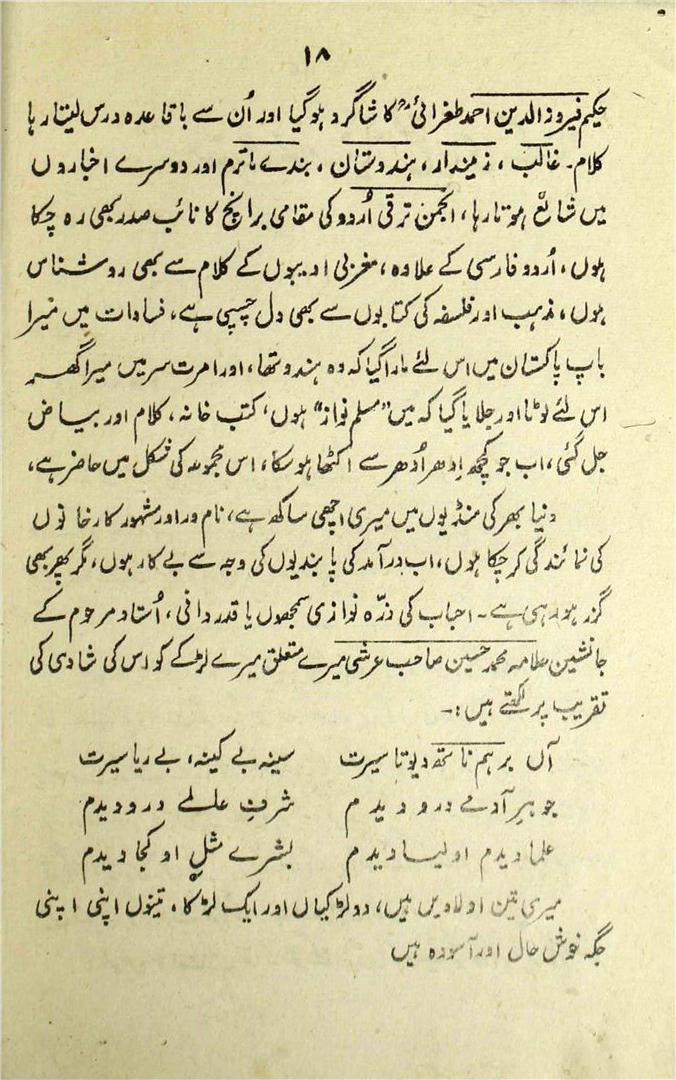 ۱۸
حکیم فیروز الدین احمد طغرائیؒ کا شاگرد ہو گیا اور اُن سے باقاعدہ درس لیتا رہا
کلام۔ غالب، زمیندار، ہندوستان، بندے ماترم اور دوسرے اخباروں
میں شائع ہوتا رہا، انجمن ترقی اُردو کی مقامی برانچ کا نائب صدر بھی رہ چکا
ہوں، اُردو فارسی کے علاوہ، مغربی ادیبوں کے کلام سے بھی روشناس
ہوں، مذہب اور فلسفہ کی کتابوں سے بھی دل چسپی ہے، فسادات میں میرا
باپ پاکستان میں اس لئے مارا گیا کہ وہ ہندو تھا، اور امرت سر میں میرا گھر
اس لئے لوٹا اور جلایا گیا کہ میں "مسلم نواز" ہوں، کتب خانہ، کلام اور بیاض
جل گئی، اب جو کچھ اِدھر اُدھر سے اکٹھا ہو سکا، اس مجموعہ کی شکل میں حاضر ہے،
دنیا بھر کی منڈیوں میں میری اچھی ساکھ ہے، نام ور اور مشہور کارخانوں
کی نمائندگی کر چکا ہوں، اب درآمد کی پابندیوں کی وجہ سے بے کار ہوں، مگر پھر بھی
گزر ہو رہی ہے۔ احباب کی ذرّہ نوازی سمجھوں یا قدردانی، اُستاد مرحوم کے
جانشین علامہ محمد حسین صاحب عرشی میرے متعلق میرے لڑکے کو اس کی شادی کی
تقریب پر لکھتے ہیں:۔
آں برہم ناتھ دیوتا سیرت سینہ بے کینہ، بے ریا سیرت
جوہرِ آدمے درو دیدم شرفِ عالمے درو دیدم
علما دیدم اولیا دیدم بشرے مثلِ او کجا دیدم
میری تین اولادیں ہیں، دو لڑکیاں اور ایک لڑکا، تینوں اپنی اپنی
جگہ خوش حال اور آسودہ ہیں